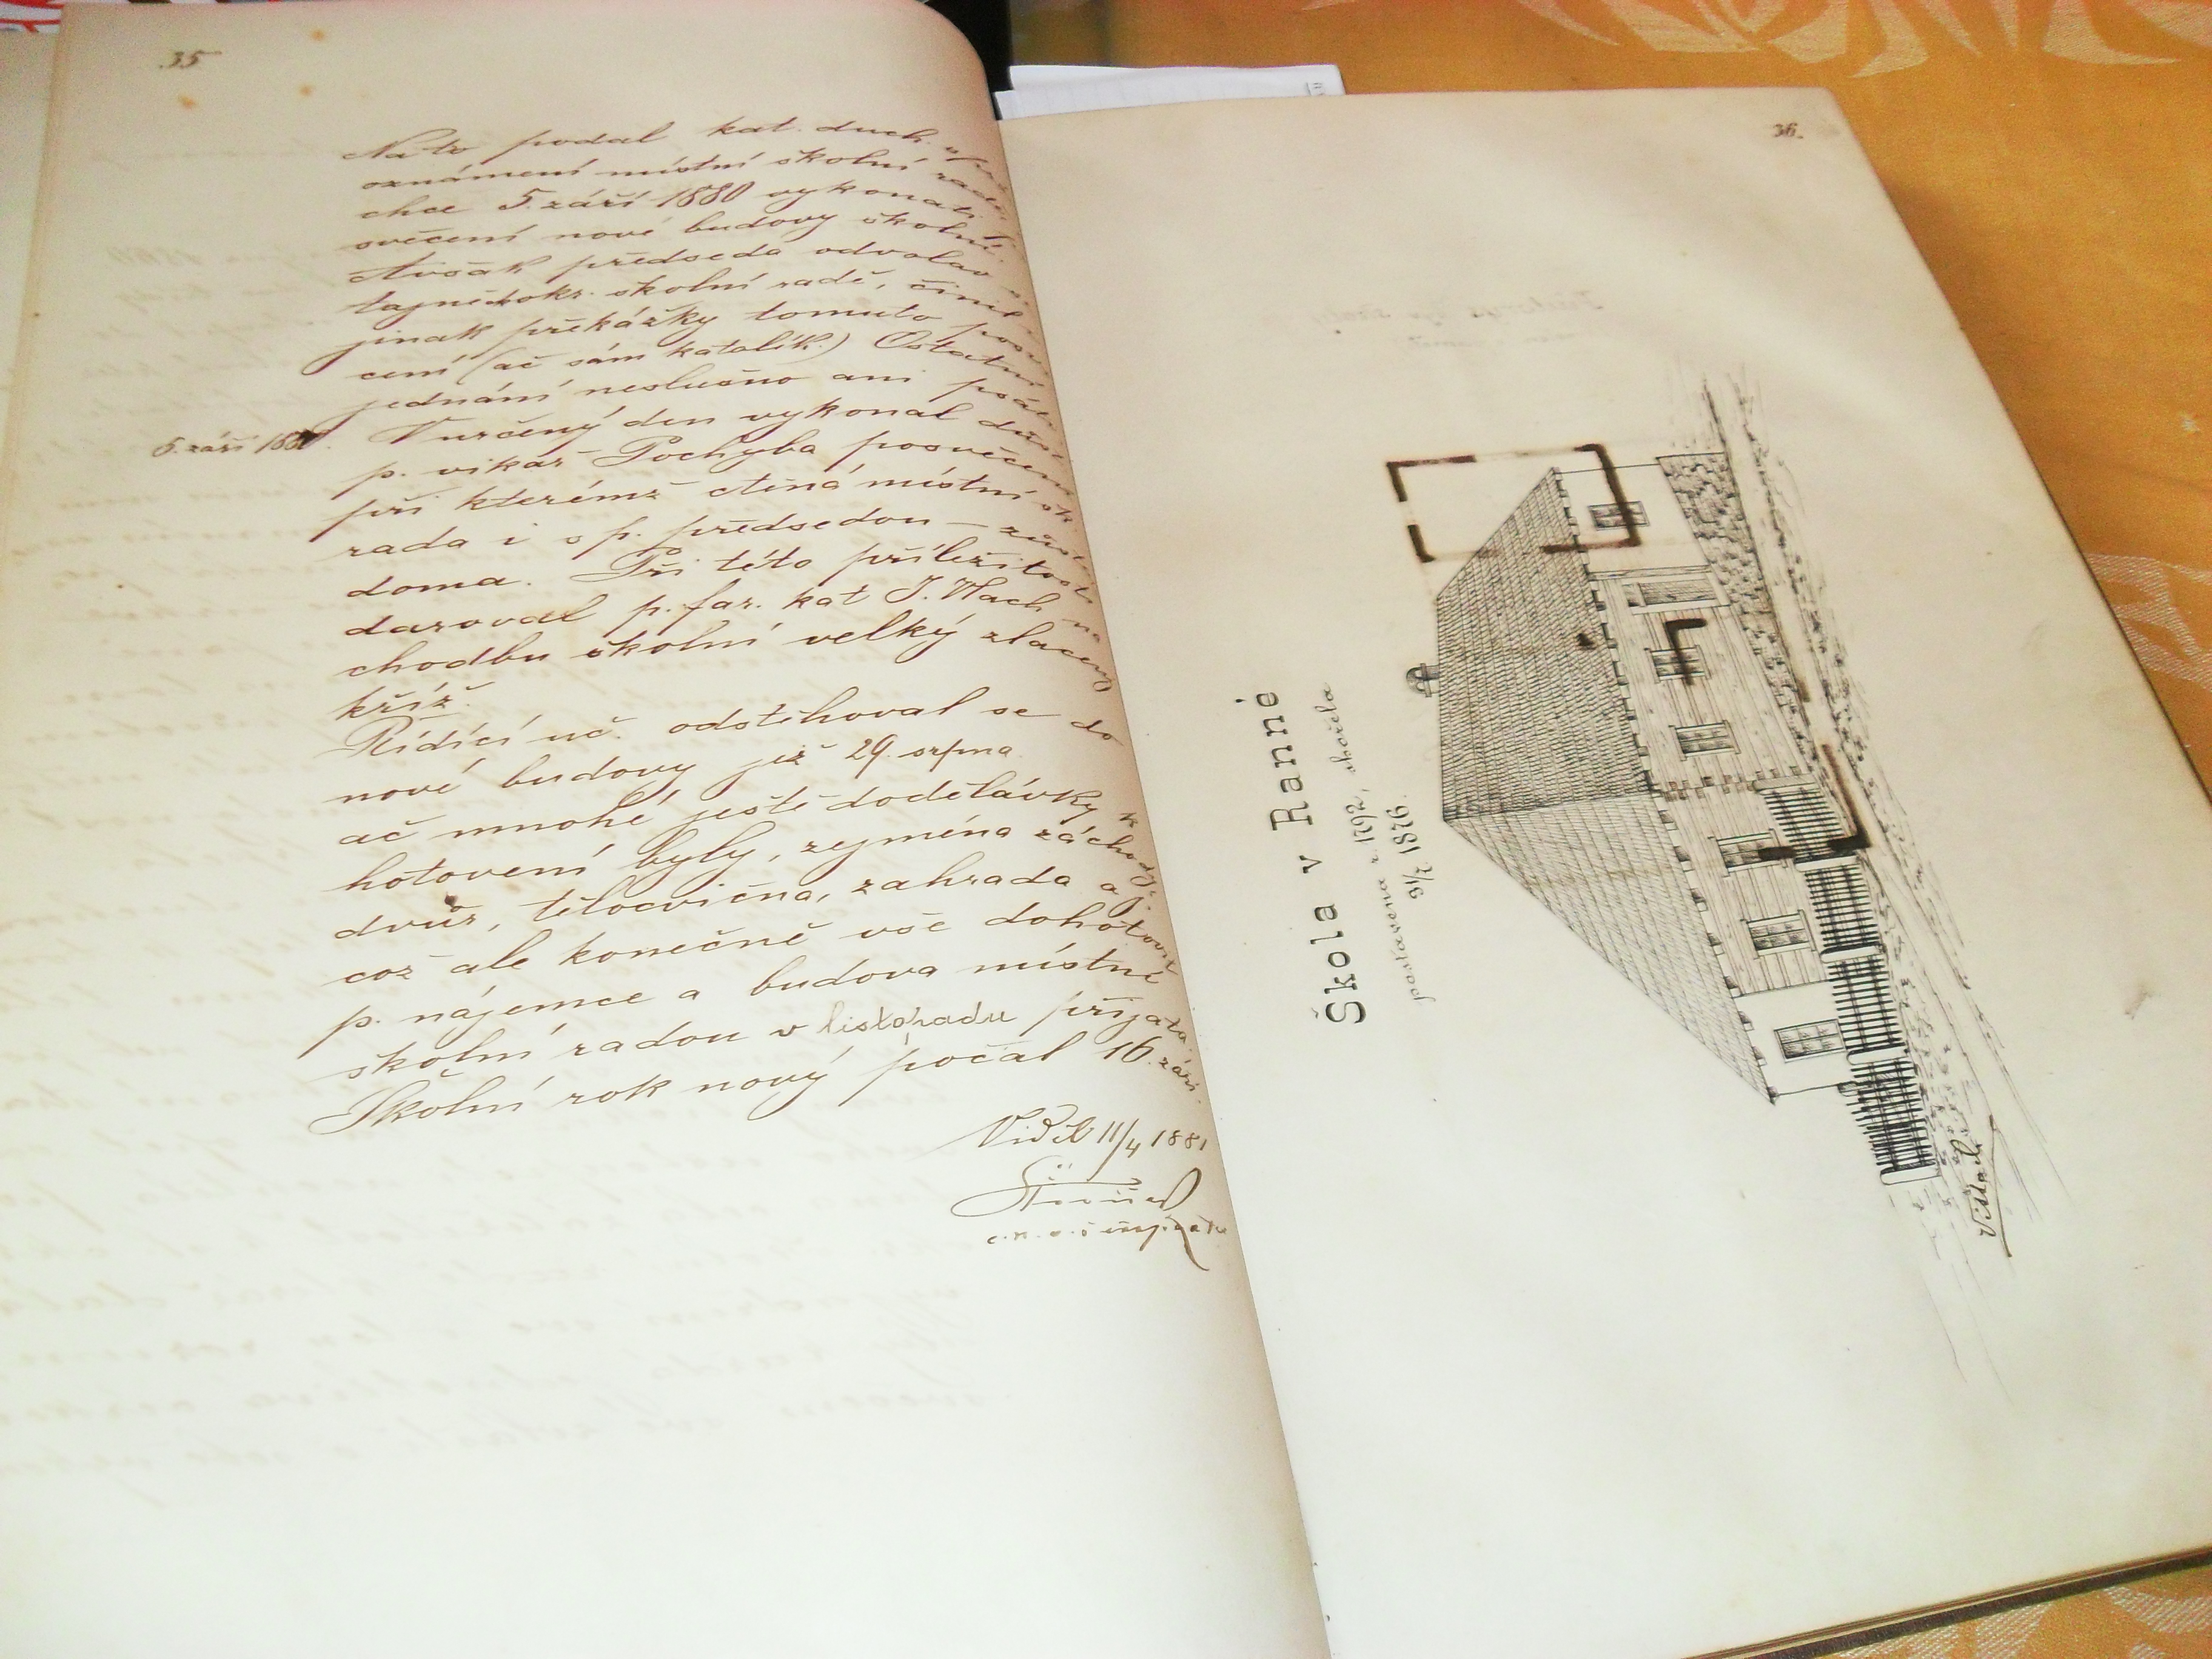 35
Na to podal kat. duch.
oznámení místní školní radě
chce 5. září 1880 vykonati
svěcení nové budovy školní.
Avšak předseda odvolav
tajně okr. školní radě, činil
jinak překážky tomuto
cení (ač sám katolík.) Ostatní
jednání neslušno ani psáti.
5. září 1880.
V určený den vykonal
p. vikář Pochyba posvěcení
při kterémž ctěná místní šk.
rada i s p. předsedou –
doma. Při této příležitosti
daroval p. far. kat J. Vlach na
chodbu školní velký zlacený
kříž.
Řídící uč. odstěhoval se do
nové budovy již 29. srpna
ač mnohé ještě dodělávky k
hotovení byly, zejména záchody,
dvůr, tělocvična, zahrada aj.
což ale konečně vše dohotovil
p. nájemce a budova místní
školní radou v listopadu přijata.
Školní rok nový počal 16. září.
Viděl 11/4 1881
36.
Škola v Ranné
postavena r. 1792, shořela
31/7 1876.